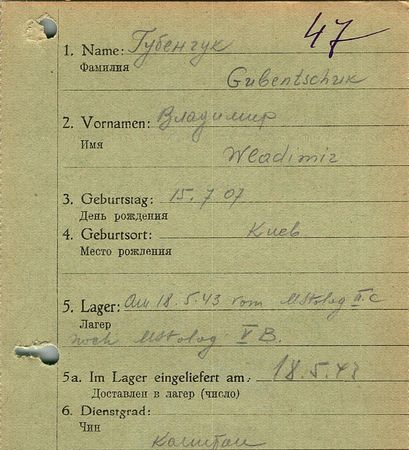 47
1. Name: Губенчук
Фамилия
Gubentschuk
2. Vornamen: Владимир
Имя
Wladimir
3. Geburtstag: 15.7 07
День рождения
4. Geburtsort: Киев
Место рождения
5. Lager: Am 18.5.43 vom MStalag II.C
Лагер
nach MStalag V B.
5a. Im Lager eingeliefert am: 18.5.43
Доставлен в лагер (число)
6. Dienstgrad:
Чин
Капитан